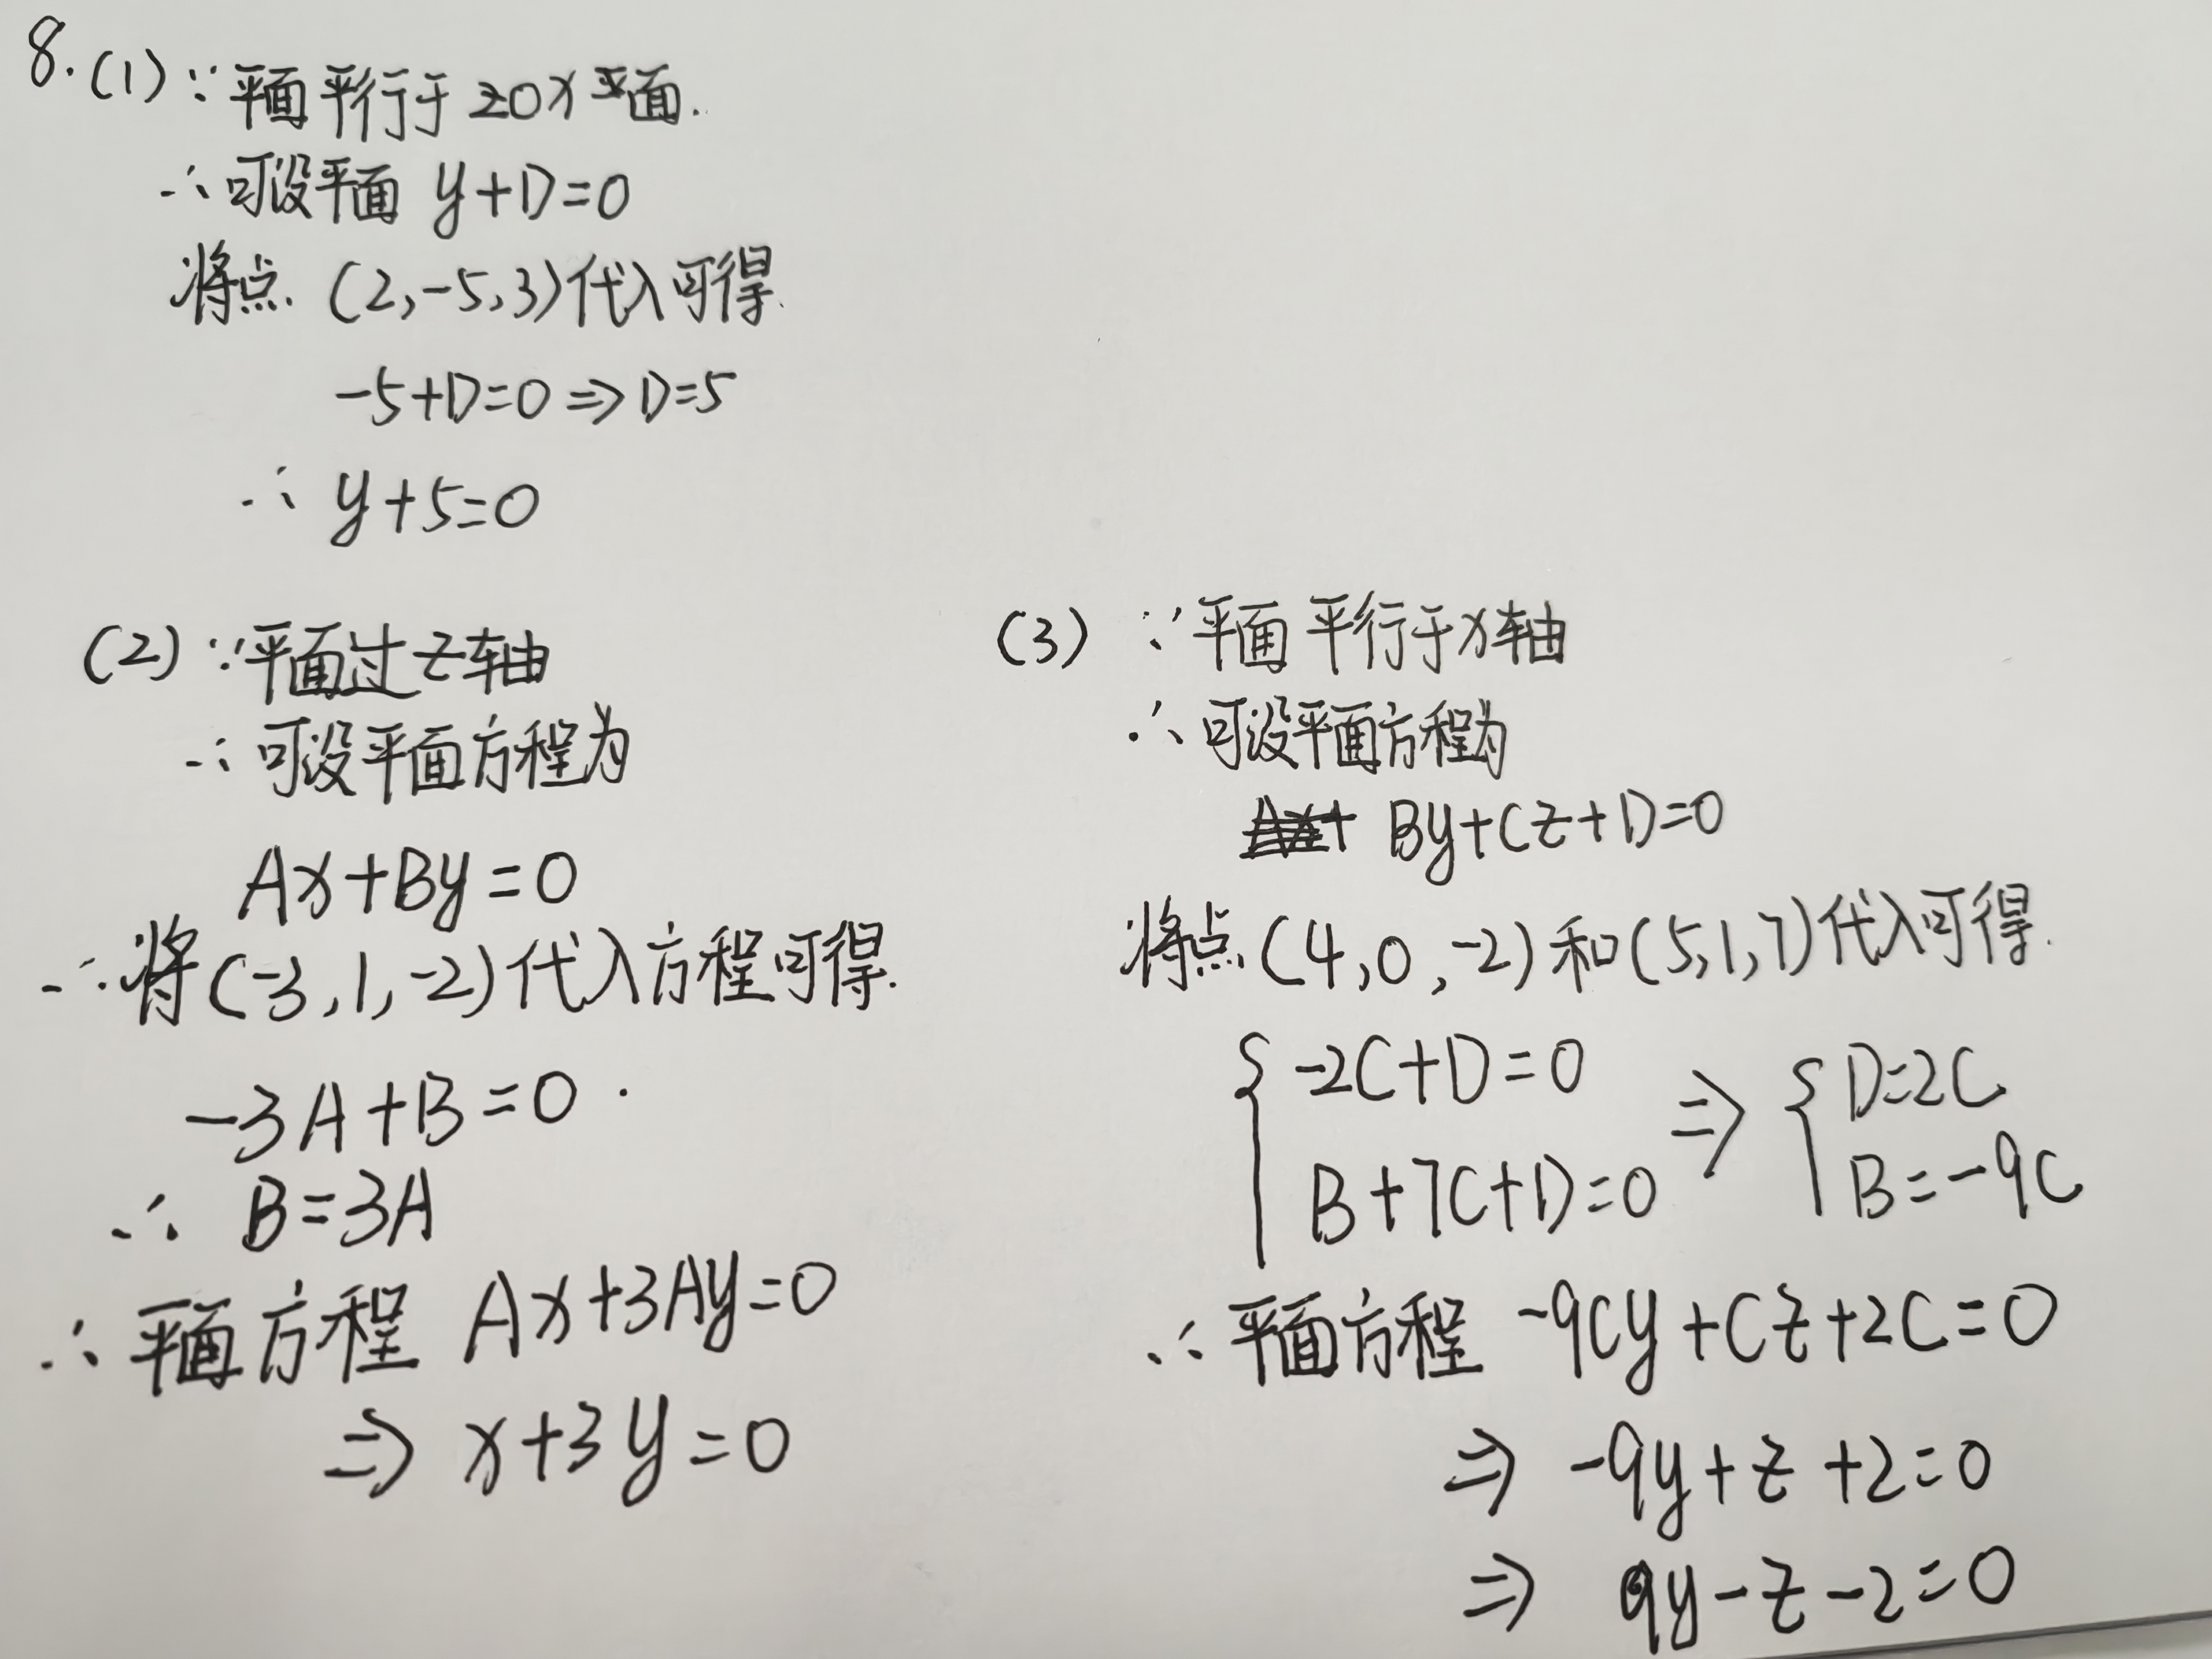 8.(1)∵平面平行于zOx平面.
∴可设平面 y+D=0
将点(2,-5,3)代入可得.
-5+D=0⇒D=5
∴ y+5=0
(2)∵平面过z轴
∴可设平面方程为
Ax+By=0
∴将(-3,1,-2)代入方程可得.
-3A+B=0.
∴ B=3A
∴平面方程 Ax+3Ay=0
⇒ x+3y=0
(3) ∵平面平行于x轴
∴可设平面方程为
By+Cz+D=0
将点(4,0,-2)和(5,1,7)代入可得.
{-2C+D=0 ⇒ {D=2C
B+7C+D=0 B=-9C
∴平面方程 -9Cy+Cz+2C=0
⇒ -9y+z+2=0
⇒ 9y-z-2=0